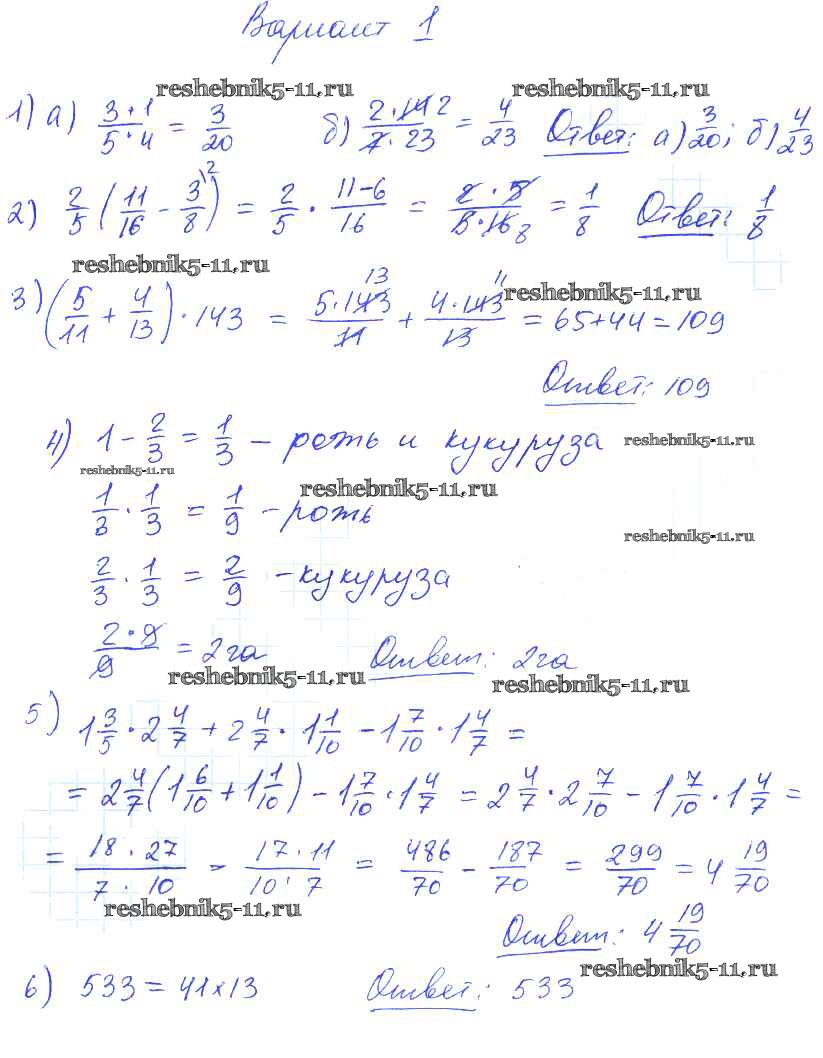 Вариант 1
reshebnik5-11.ru reshebnik5-11.ru
1) а) 3·1/5·4 = 3/20 б) 2·14 2/7·23 = 4/23 Ответ: а) 3/20; б) 4/23
2) 2/5 (11/16 - 3/8 \2) = 2/5 · 11-6/16 = 2·5/5·16 8 = 1/8 Ответ: 1/8
reshebnik5-11.ru
3) (5/11 + 4/13) · 143 = 5·143 13/11 + 4·143 11/13 = 65+44=109
reshebnik5-11.ru
Ответ: 109
4) 1 - 2/3 = 1/3 - рожь и кукуруза reshebnik5-11.ru
reshebnik5-11.ru
reshebnik5-11.ru
1/3 · 1/3 = 1/9 - рожь
reshebnik5-11.ru
2/3 · 1/3 = 2/9 - кукуруза
2·9/9 = 2га Ответ: 2га
reshebnik5-11.ru reshebnik5-11.ru
5) 1 3/5 · 2 4/7 + 2 4/7 · 1 1/10 - 1 7/10 · 1 4/7 =
= 2 4/7 (1 6/10 + 1 1/10) - 1 7/10 · 1 4/7 = 2 4/7 · 2 7/10 - 1 7/10 · 1 4/7 =
= 18·27/7·10 - 17·11/10·7 = 486/70 - 187/70 = 299/70 = 4 19/70
reshebnik5-11.ru
Ответ: 4 19/70
reshebnik5-11.ru
6) 533 = 41×13 Ответ: 533